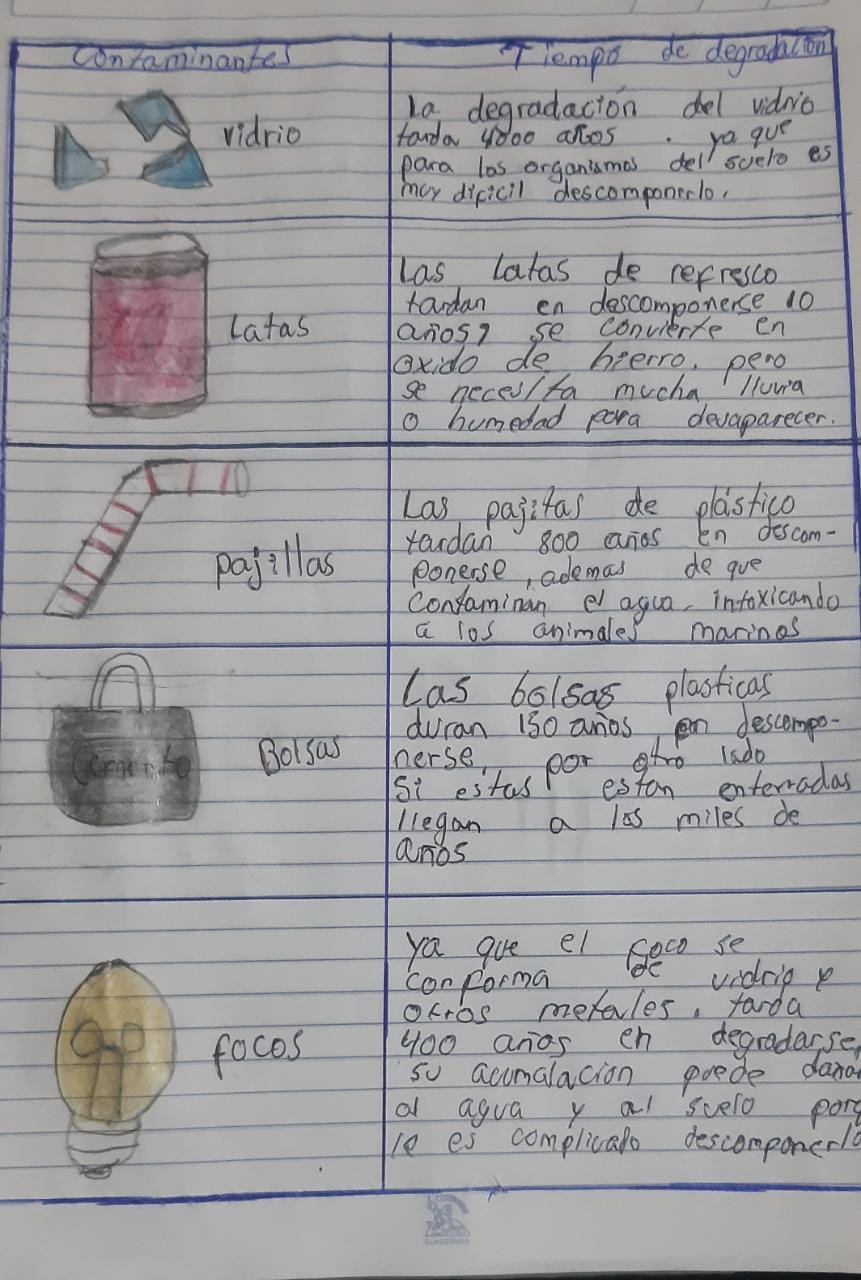 Contaminantes
Tiempo de degradación
vidrio
La degradación del vidrio
tarda 4000 años . ya que
para los organismos del suelo es
muy dificil descomponerlo.
Latas
Las latas de refresco
tardan en descomponerse 10
años, se convierte en
oxido de hierro, pero
se necesita mucha lluvia
o humedad para desaparecer.
pajillas
Las pajitas de plástico
tardan 800 años en descom-
ponerse, ademas de que
contaminan el agua, intoxicando
a los animales marinos
Cemento
Bolsas
Las bolsas plasticas
duran 150 años en descompo-
nerse, por otro lado
si estas estan enterradas
llegan a los miles de
años
focos
ya que el foco se
conforma de vidrio y
otros metales, tarda
400 años en degradarse,
su acumalacion puede dañar
al agua y al suelo porq
le es complicado descomponerlo
CUADERNOS